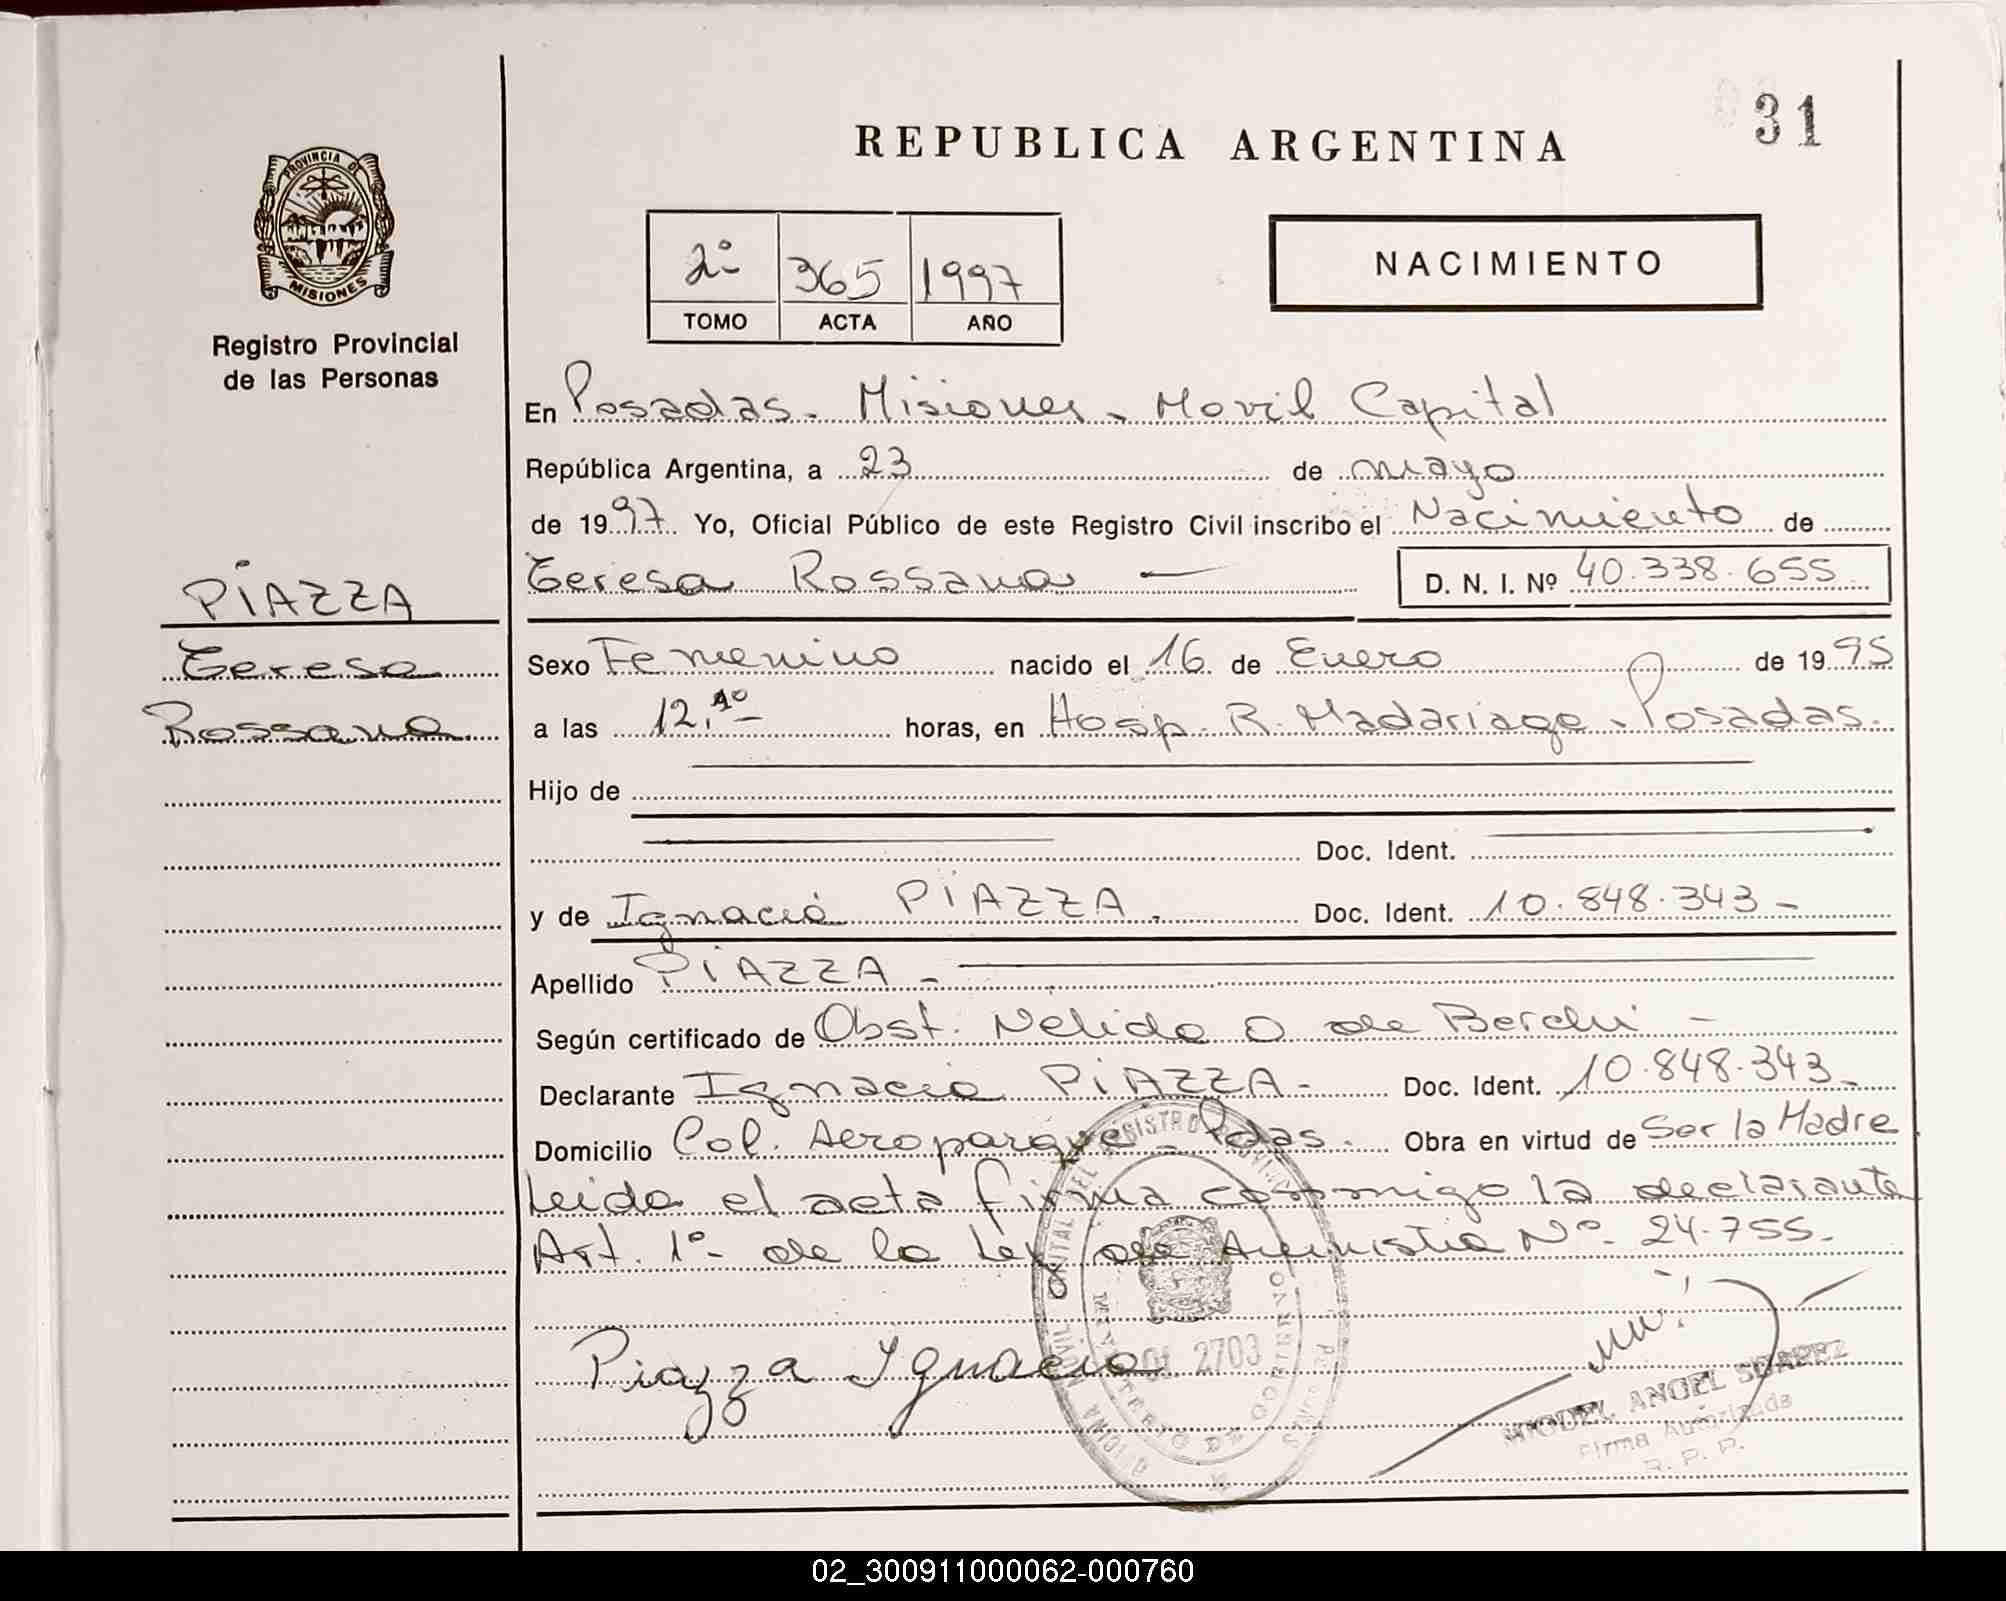 31
REPUBLICA ARGENTINA
PROVINCIA DE
MISIONES
Registro Provincial
de las Personas
2º 365 1997
TOMO ACTA AÑO
NACIMIENTO
En Posadas - Misiones - Movil Capital
República Argentina, a 23 de mayo
de 1997 Yo, Oficial Público de este Registro Civil inscribo el Nacimiento de
Teresa Rossana — D. N. I. Nº 40.338.655
PiAZZA
Teresa
Rossana
Sexo Femenino nacido el 16 de Enero de 1995
a las 12,10 horas, en Hosp. R. Madariaga - Posadas.
Hijo de
Doc. Ident.
y de Ignacia PiAZZA. Doc. Ident. 10.848.343 -
Apellido PiAZZA -
Según certificado de Obst. Nelida O de Berchi -
Declarante Ignacia PiAZZA - Doc. Ident. 10.848.343 -
Domicilio Col. Aeroparque - Pdas. Obra en virtud de Ser la Madre
Leida el acta firma conmigo la declarante
Art. 1º - de la Ley de Amnistia Nº 24.755.
Piazza Ignacia
2703
MIGUEL ANGEL SUAREZ
Firma Autorizada
R. P. P.
02_300911000062-000760